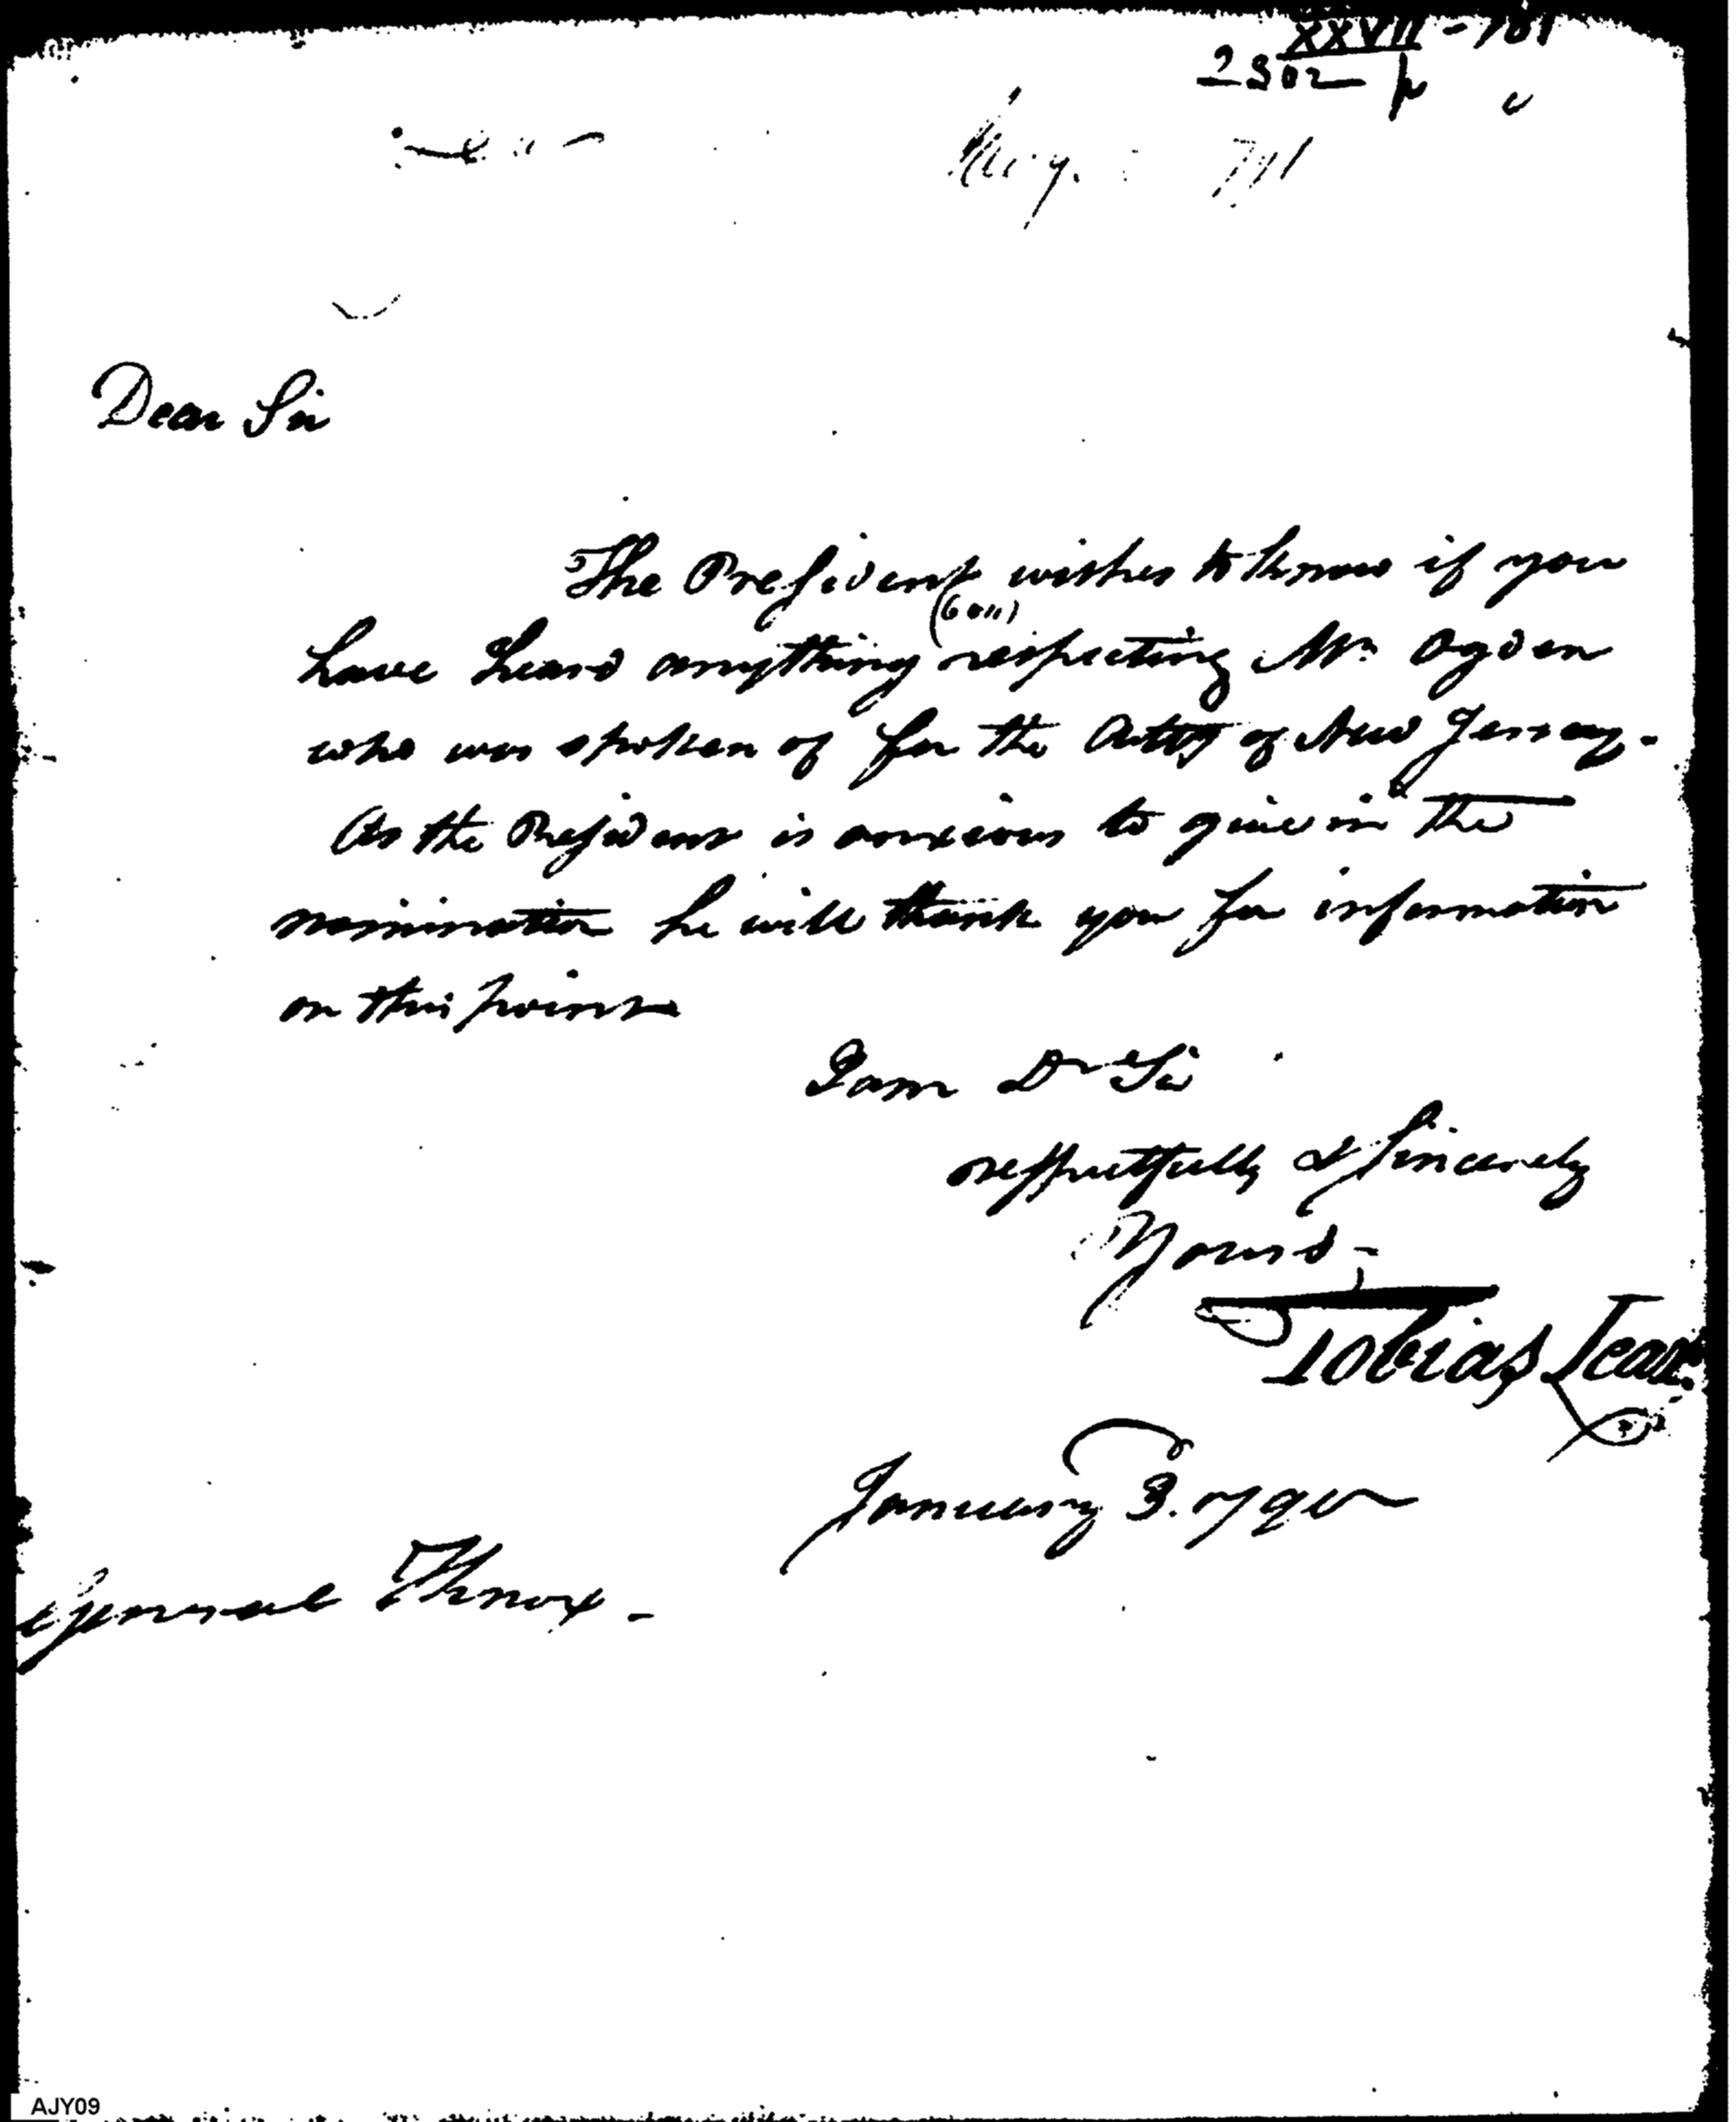 XXVII - 101
2302
Dear Sir
The President wishes to know if you
have heard anything respecting Mr. Ogden
who was spoken of for the Atty of New Jersey.
As the President is anxious to give in the
nomination he will thank you for information
on this point
I am Dr Sir
respectfully & sincerely
Yours -
Tobias Lear.
January 3. 790
General Knox -
AJY09